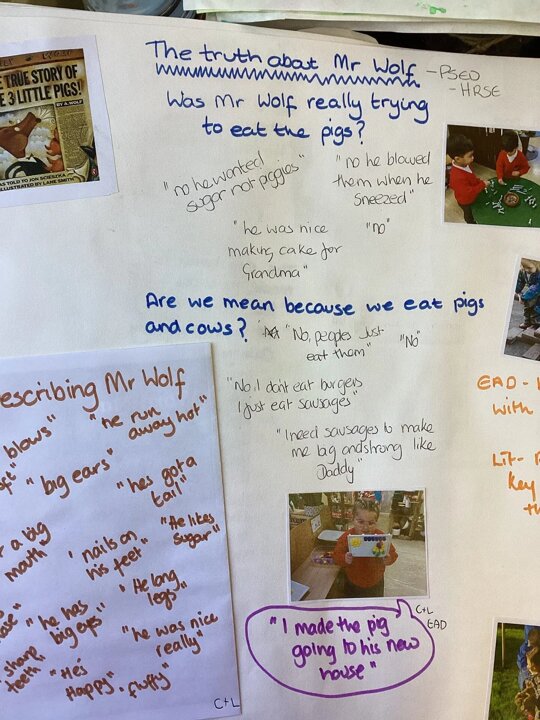 The truth about Mr Wolf
- PSED
- HRSE
Was Mr Wolf really trying
to eat the pigs?
TRUE STORY OF
3 LITTLE PIGS!
BY A. WOLF
AS TOLD TO JON SCIESZKA
ILLUSTRATED BY LANE SMITH
"no he wanted
sugar not piggies"
"no he blowed
them when he
sneezed"
"he was nice
making cake for
Grandma"
"no"
Are we mean because we eat pigs
and cows?
"No, peoples just
eat them"
"No"
"No, I don't eat burgers
I just eat sausages"
"I need sausages to make
me big and strong like
Daddy"
escribing Mr Wolf
blows"
"he run
away hot"
"big ears"
"hes got a
tail"
a big
mouth
"nails on
his feet"
"He likes
sugar"
"he has
big eyes"
"He long
legs"
sharp
teeth
"he was nice
really"
"He's
Happy. fluffy"
C+L
EAD -
with
Lit-
key
th
C+L
EAD
"I made the pig
going to his new
house"